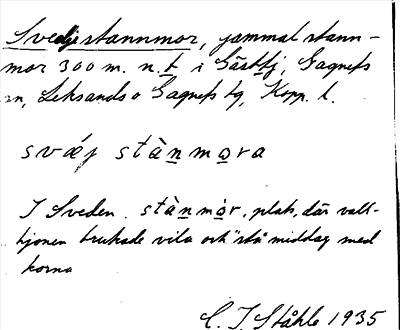 Svedjestannmor, gammal stann-
mor 300 m. n. t i Gästtj, Gagnefs
sn, Leksands o Gagnefs tg, Kopp. l.
svǽj stànmora
I Sveden. stànmòr, plats, där vall-
hjonen brukade vila och "stå" middag med
korna
C. I. Ståhle 1935